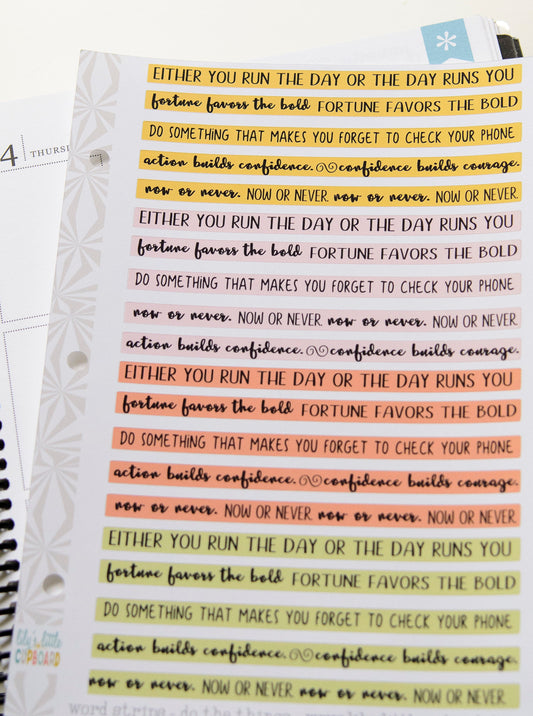 4 THURS
EITHER YOU RUN THE DAY OR THE DAY RUNS YOU
fortune favors the bold FORTUNE FAVORS THE BOLD
DO SOMETHING THAT MAKES YOU FORGET TO CHECK YOUR PHONE
action builds confidence. confidence builds courage.
now or never. NOW OR NEVER. now or never. NOW OR NEVER.
EITHER YOU RUN THE DAY OR THE DAY RUNS YOU
fortune favors the bold FORTUNE FAVORS THE BOLD
DO SOMETHING THAT MAKES YOU FORGET TO CHECK YOUR PHONE
now or never. NOW OR NEVER. now or never. NOW OR NEVER.
action builds confidence. confidence builds courage.
EITHER YOU RUN THE DAY OR THE DAY RUNS YOU
fortune favors the bold FORTUNE FAVORS THE BOLD
DO SOMETHING THAT MAKES YOU FORGET TO CHECK YOUR PHONE
action builds confidence. confidence builds courage.
now or never. NOW OR NEVER. now or never. NOW OR NEVER.
EITHER YOU RUN THE DAY OR THE DAY RUNS YOU
fortune favors the bold FORTUNE FAVORS THE BOLD
DO SOMETHING THAT MAKES YOU FORGET TO CHECK YOUR PHONE
action builds confidence. confidence builds courage.
now or never. NOW OR NEVER. now or never. NOW OR NEVER.
lily's little
CUPBOARD
word strips - do the things